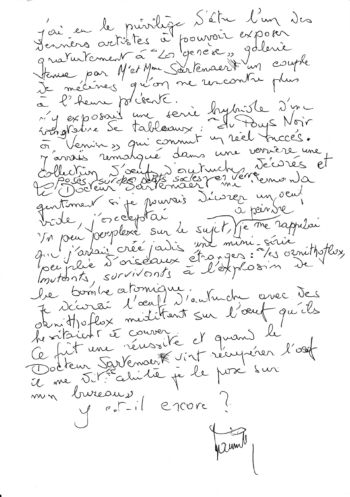 j'ai eu le privilège d'être l'un des
derniers artistes à pouvoir exposer
gratuitement à "La genèse", galerie
tenue par Mr et Mme Sartenaert un couple
de mécènes qu'on ne rencontre plus
à l'heure présente.
J'y exposais une série hybride d'une
vingtaine de tableaux: "du Pays Noir
à Venin" qui connut un réel succès.
J'avais remarqué dans une verrière une
collection d'oeufs d'autruche décorés et
posés sur des petits socles en verre
le Docteur Sartenaert me demanda
gentiment si je pouvais décorer un oeuf
vide, j'acceptai
à peindre,
Un peu perplexe sur le sujet, je me rappelai
que j'avais créé jadis une mini série
peuplée d'oiseaux étranges: "les ornithoflox,
mutants, survivants à l'explosion de
la bombe atomique.
Je décorai l'oeuf d'autruche avec des
ornithoflox méditant sur l'oeuf qu'ils
hésitaient à couver.
Ce fut une réussite et quand le
Docteur Sartenaert vint récupérer l'oeuf
il me dit: je le pose sur
mon bureau»
Y est-il encore?